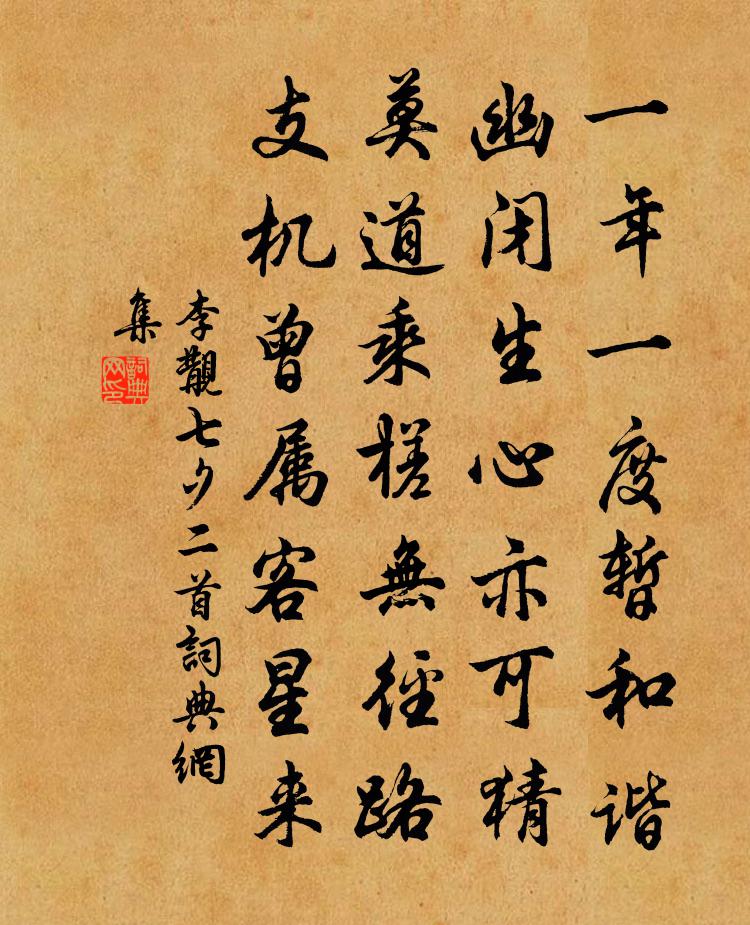 一年一度暫和谐
幽闭生心亦可猜
莫道乘槎無徑路
支机曾属客星来
李觀七夕二首詞典網
集
詞典
网印